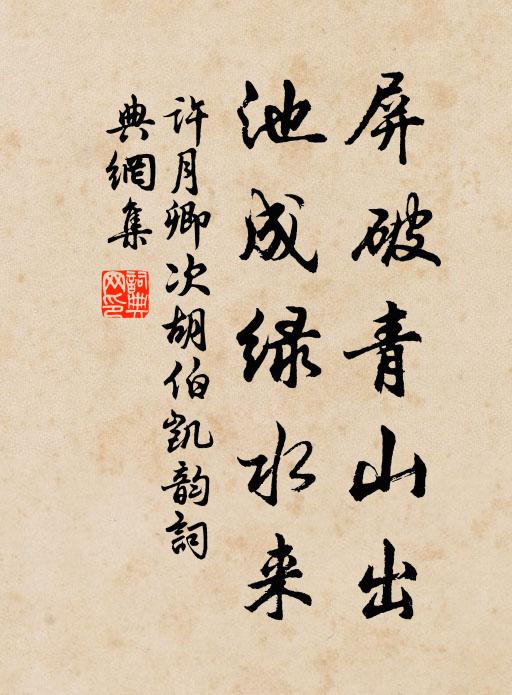 屏破青山出
池成绿水来
许月卿次胡伯凯韵詞
典網集
詞典
网印